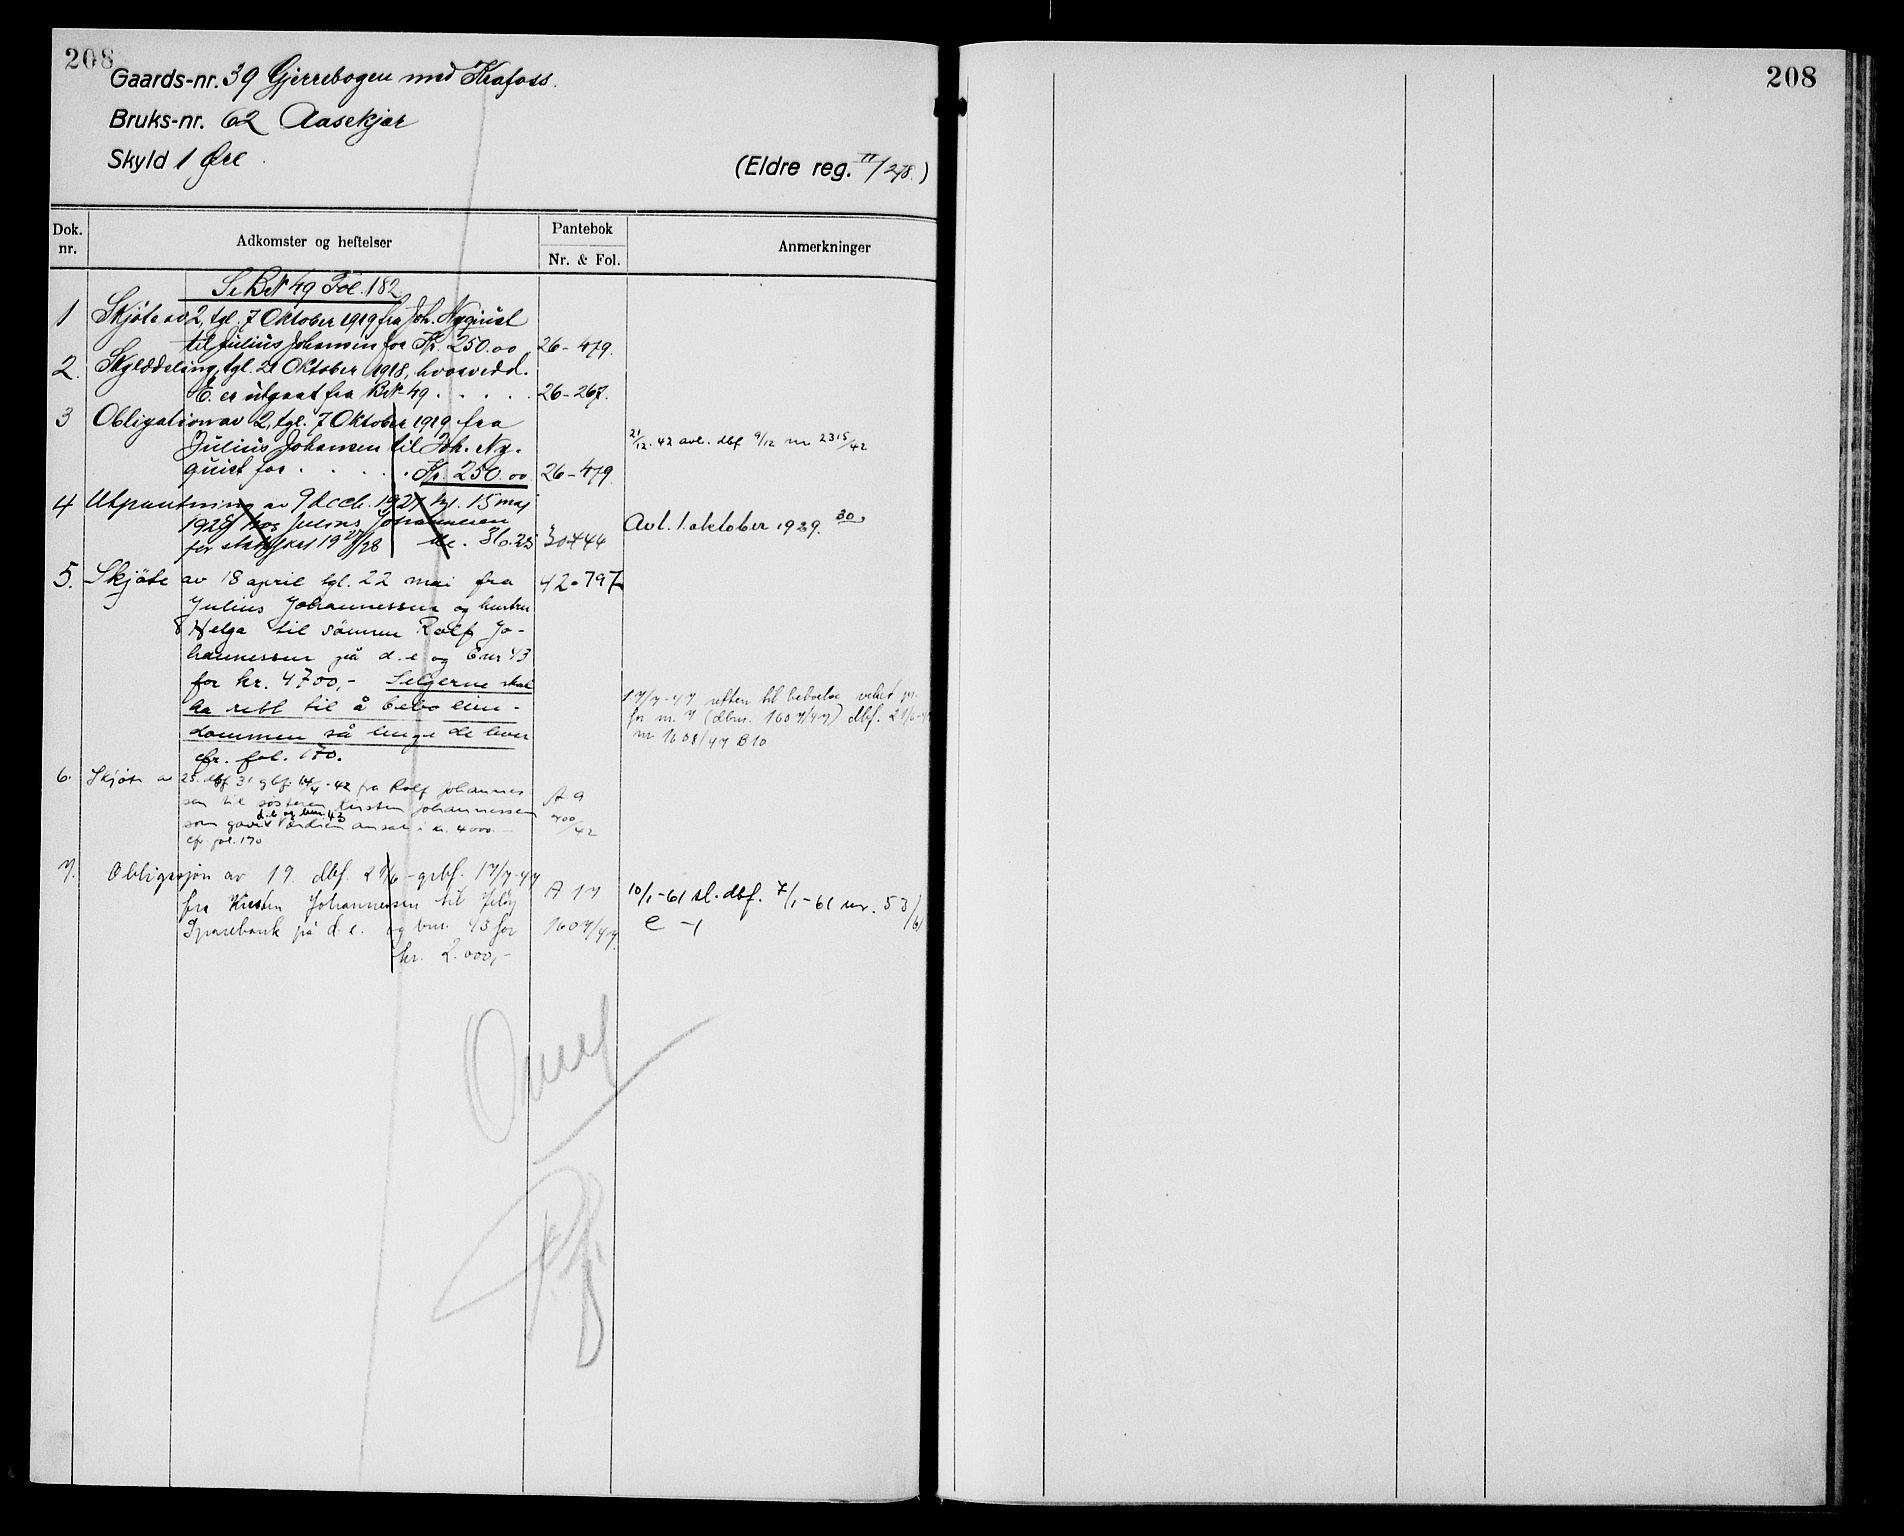 208
Gaards-nr. 39 Gjerrebogen med Krafoss.
Bruks-nr. 62 Aasekjær
Skyld 1 Øre.
(Eldre reg. II/278.)
Dok. nr. Adkomster og heftelser Pantebok Nr. & Fol. Anmerkninger
Se BrN 49 Fol. 182
1 Skjøte av 2, tgl. 7 Oktober 1919 fra Joh. Nyquist
til Julius Johansen for Kr. 250.00 26-479.
2. Skylddeling, tgl. 21 Oktober 1918, hvorved d.
E. er utgaat fra BrN 49 . . . . . 26-267.
3 Obligation av 2, tgl. 7 Oktober 1919 fra
Julius Johansen til Joh. Ny-
quist for . . . . . Kr. 250.00 26-479
21/12.42 avl. dbf 9/12 nr 2315/42
4 Utpantning av 9 decb. 1927 tgl. 15 mai
1928 hos Julius Johannesen
for skat 1927/28 kr. 36.25 30-444
Avl. 1. oktober 1929. 30
5. Skjøte av 18 april tgl. 22 mai fra 42-797
Julius Johannessen og hustru
Helga til sønnen Rolf Jo-
hannessen på d.e og bnr 43
for kr. 4700,- Selgerne skal
ha rett til å bebo eien-
dommen så lenge de lever
cfr. fol. 170.
17/7-47 retten til beboelse veket pr.
for nr. 7 (dbnr. 1607/47) dbf. 21/6-47
nr 1608/47 B10
6. Skjøte av 25. dbf 31 gbf. 14/4-42 fra Rolf Johannes
sen til søsteren Kirsten Johannessen
d.e og bnr. 43
som gave. Verdien ansat i kr. 4000.-
cfr. fol. 170
A 9
700/42
7. Obligasjon av 19. dbf. 21/6 - grbf. 17/7-47
fra Kirsten Johannessen til
Sparebank på d.e. og bnr. 43 for
kr. 2.000,-
A 17
1607/47.
10/1-61 sl. dbf. 7/1-61 nr. 53/61
208